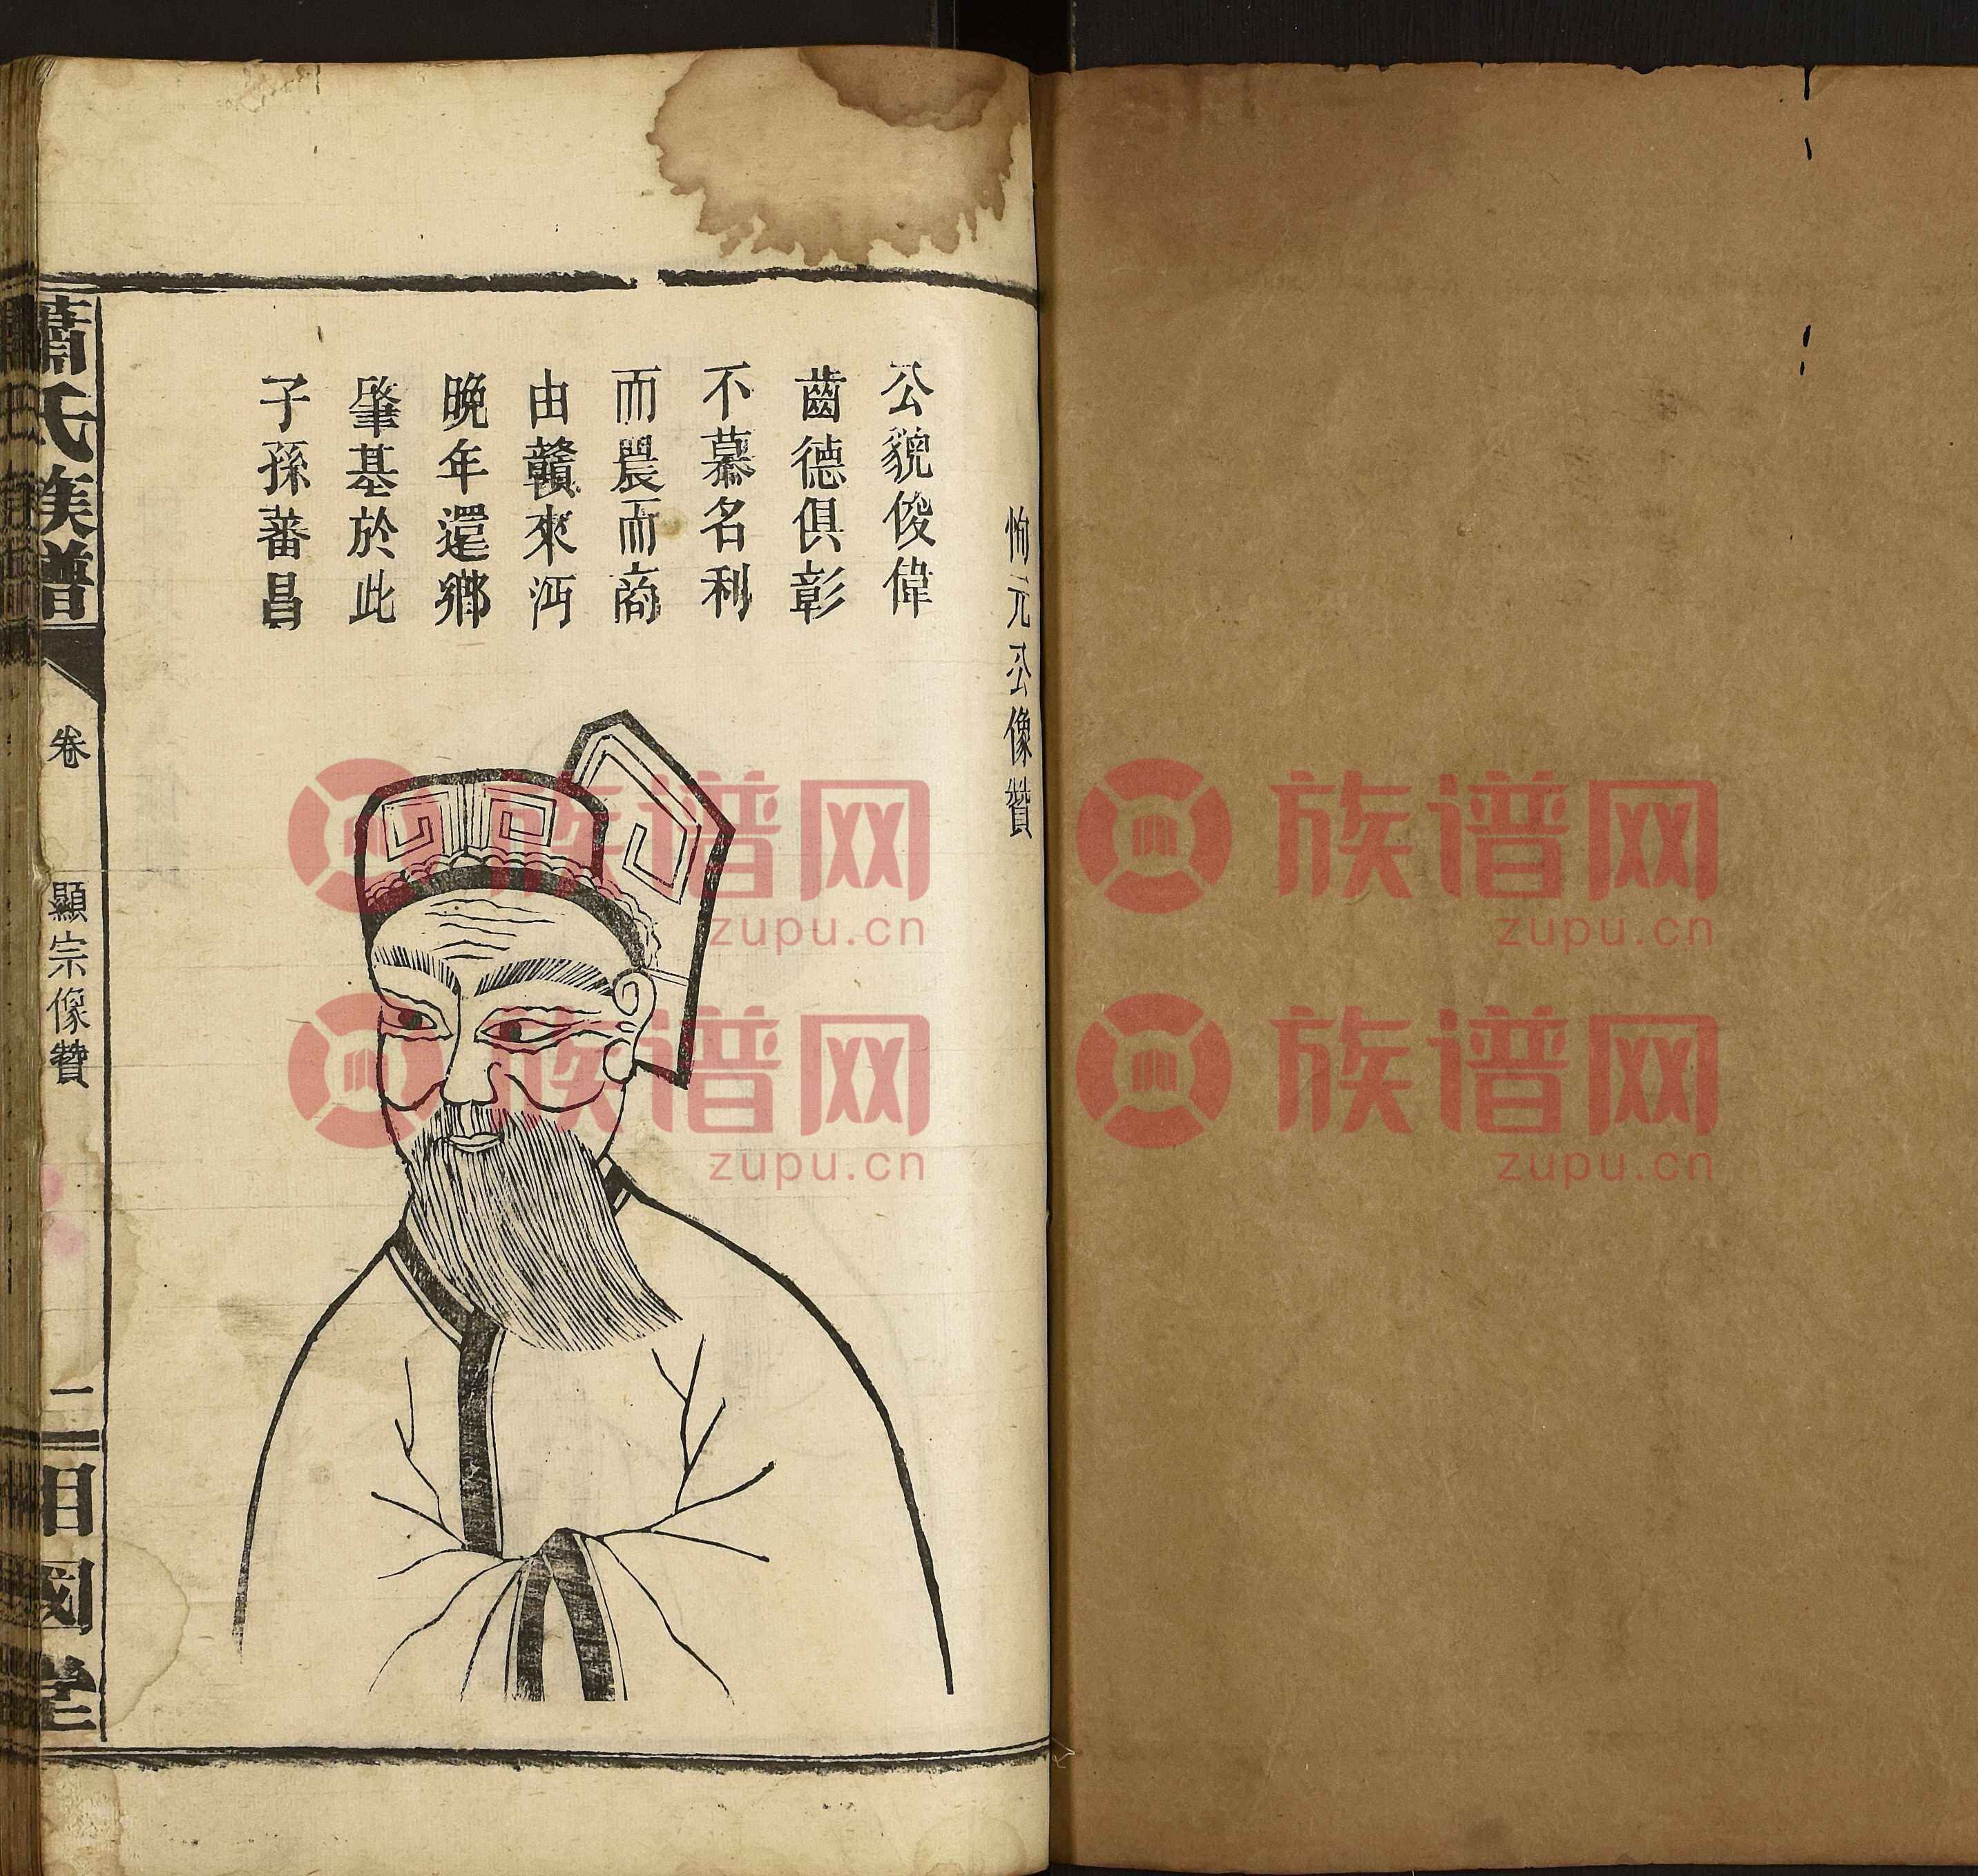 恂元公像贊
公貌俊偉
齒德俱彰
不慕名利
而農而商
由贛來沔
晚年還鄉
肇基於此
子孫蕃昌
蕭氏族譜
卷
顯宗像贊
二
相國堂
族谱网
zupu.cn
族谱网
zupu.cn
族谱网
zupu.cn
族谱网
zupu.cn